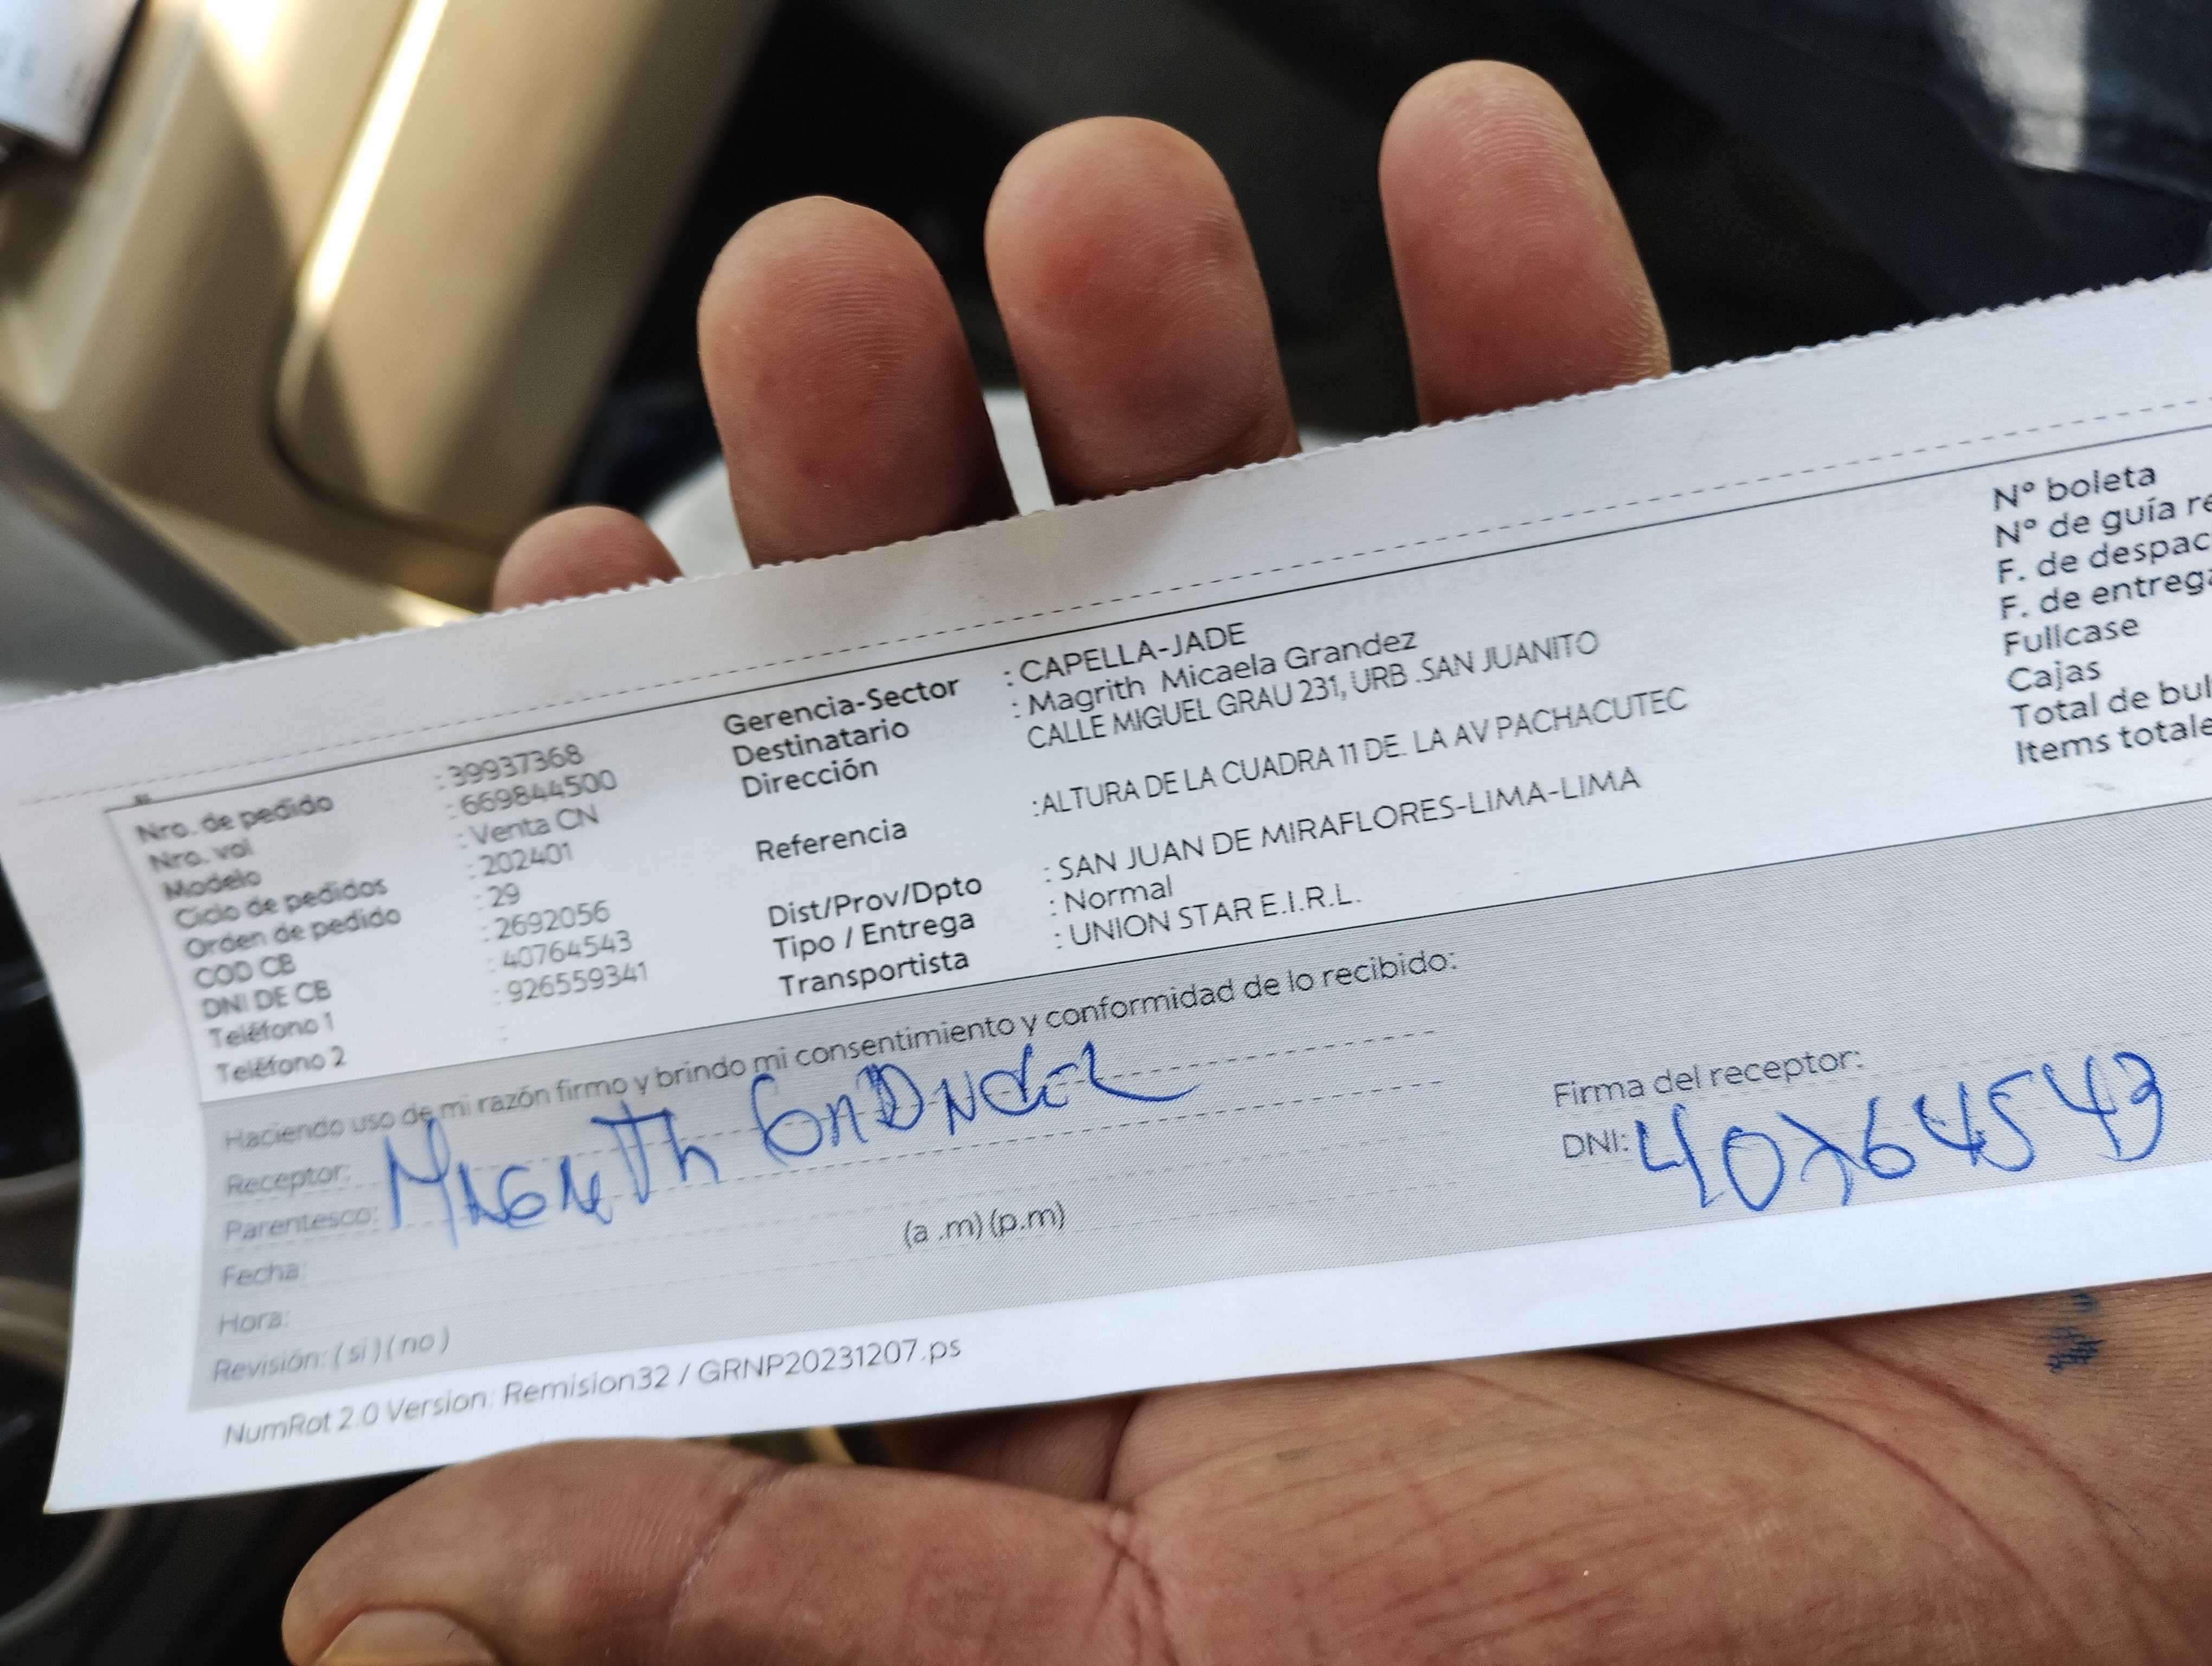 Nro. de pedido : 39937368
Nro. vol : 669844500
Modelo : Venta CN
Ciclo de pedidos : 202401
Orden de pedido : 29
COD CB : 2692056
DNI DE CB : 40764543
Teléfono 1 : 926559341
Teléfono 2 :
Gerencia-Sector : CAPELLA-JADE
Destinatario : Magrith Micaela Grandez
Dirección CALLE MIGUEL GRAU 231, URB .SAN JUANITO
Referencia :ALTURA DE LA CUADRA 11 DE. LA AV PACHACUTEC
Dist/Prov/Dpto : SAN JUAN DE MIRAFLORES-LIMA-LIMA
Tipo / Entrega : Normal
Transportista : UNION STAR E.I.R.L.
N° boleta
N° de guía re
F. de despac
F. de entrega
Fullcase
Cajas
Total de bul
Items totale
Haciendo uso de mi razón firmo y brindo mi consentimiento y conformidad de lo recibido:
Receptor:
Parentesco:
Fecha:
Hora: (a .m) (p.m)
Revisión: ( si ) ( no )
Firma del receptor:
DNI: 40764543
NumRot 2.0 Version: Remision32 / GRNP20231207.ps